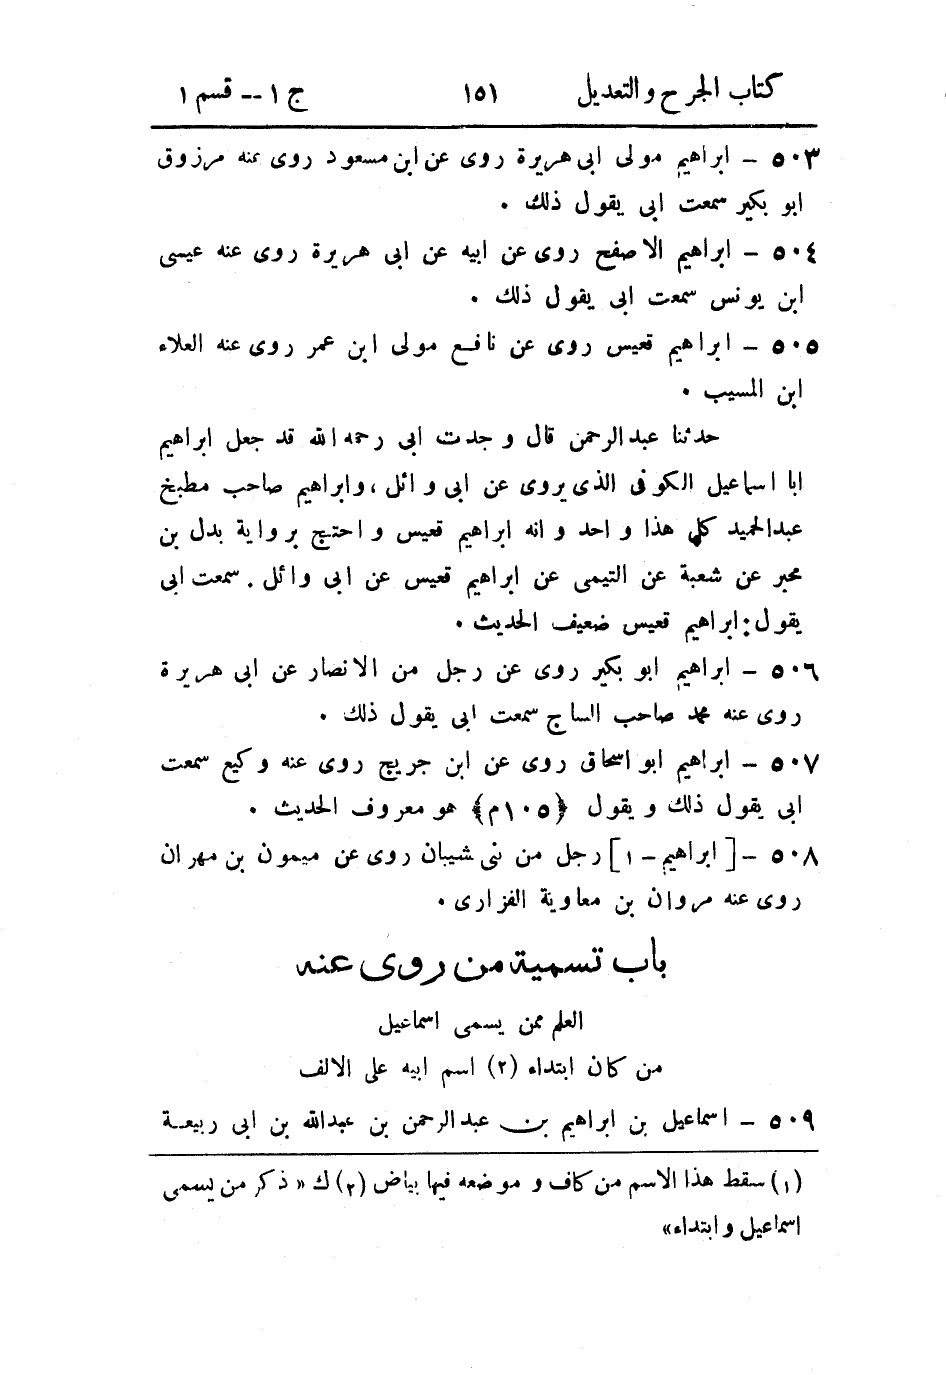 كتاب الجرح والتعديل ١٥١ ج ١ -- قسم ١
٥٠٣ - ابراهيم مولى ابى هريرة روى عن ابن مسعود روى عنه مرزوق
ابو بكير سمعت ابى يقول ذلك .
٥٠٤ - ابراهيم الاصفح روى عن ابيه عن ابى هريرة روى عنه عيسى
ابن يونس سمعت ابى يقول ذلك .
٥٠٥ - ابراهيم قعيس روى عن نافع مولى ابن عمر روى عنه العلاء
ابن المسيب .
حدثنا عبد الرحمن قال وجدت ابى رحمه الله قد جعل ابراهيم
ابا اسماعيل الكوفى الذى يروى عن ابى وائل ، وابراهيم صاحب مطبخ
عبد الحميد كلهم هذا واحد وانه ابراهيم قعيس واحتج برواية بدل بن
محبر عن شعبة عن التيمى عن ابراهيم قعيس عن ابى وائل . سمعت ابى
يقول : ابراهيم قعيس ضعيف الحديث .
٥٠٦ - ابراهيم ابو بكير روى عن رجل من الانصار عن ابى هريرة
روى عنه محمد صاحب الساج سمعت ابى يقول ذلك .
٥٠٧ - ابراهيم ابو اسحاق روى عن ابن جريج روى عنه وكيع سمعت
ابى يقول ذلك ويقول ﴿١٠٥م﴾ هو معروف الحديث .
٥٠٨ - [ابراهيم - ١] رجل من نى شيبان روى عن ميمون بن مهران
روى عنه مروان بن معاوية الفزارى .
باب تسمية من روى عنه
العلم ممن يسمى اسماعيل
من كان ابتداء (٢) اسم ابيه على الالف
٥٠٩ - اسماعيل بن ابراهيم بن عبد الرحمن بن عبدالله بن ابى ربيعة
(١) سقط هذا الاسم من كاف وموضعه فيها بياض (٢) ك «ذكر من يسمى
اسماعيل وابتداء»